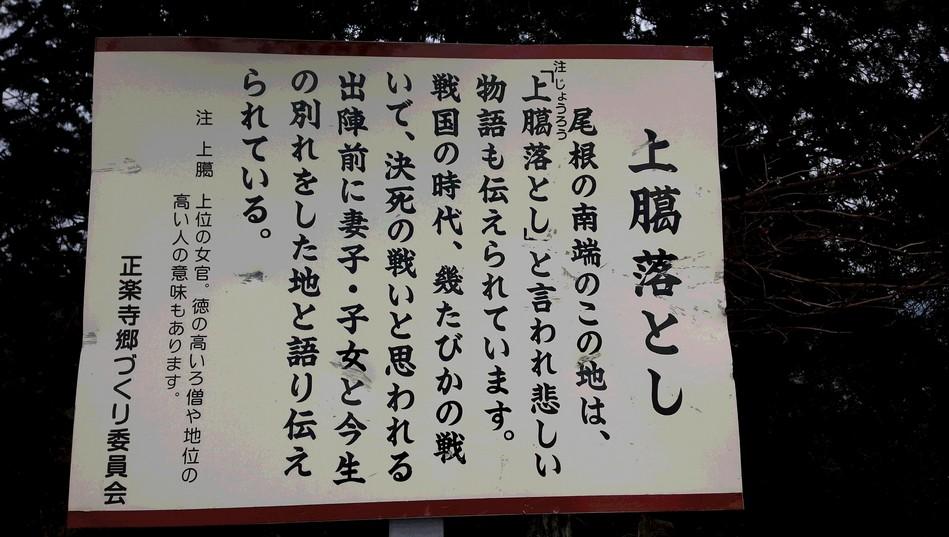 上臈落とし
尾根の南端のこの地は、
注じょうろう
「上臈落とし」と言われ悲しい
物語も伝えられています。
戦国の時代、幾たびかの戦
いで、決死の戦いと思われる
出陣前に妻子・子女と今生
の別れをした地と語り伝え
られている。
注 上臈 上位の女官。徳の高いろ僧や地位の
高い人の意味もあります。
正楽寺郷づくり委員会